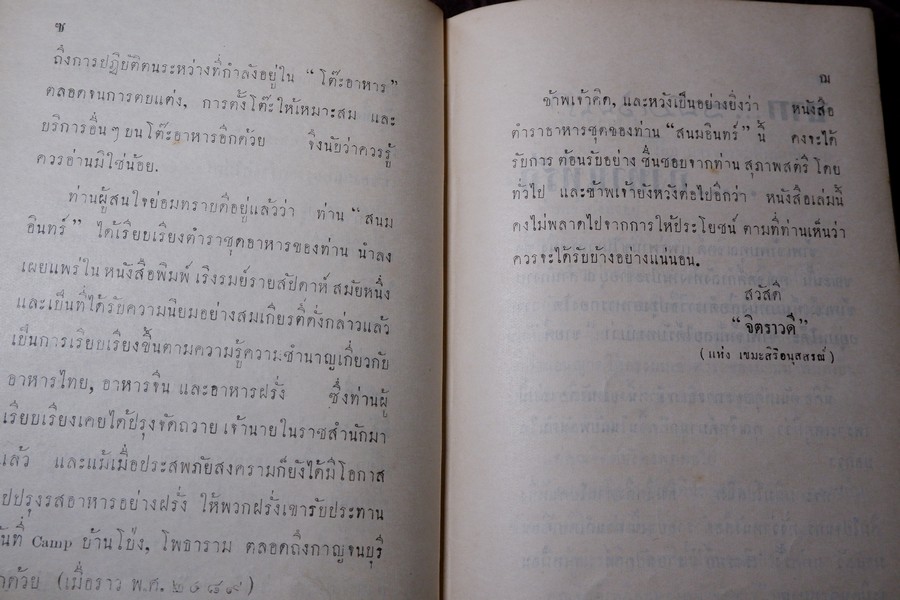 ซ
ถึงการปฏิบัติตนระหว่างที่กำลังอยู่ใน “ โต๊ะอาหาร ”
ตลอดจนการตบแต่ง, การตั้งโต๊ะให้เหมาะสม และ
บริการอื่นๆ บนโต๊ะอาหารอีกด้วย จึงนับว่าควรรู้
ควรอ่านมิใช่น้อย.
ท่านผู้สนใจย่อมทราบดีอยู่แล้วว่า ท่าน “ สนม
อินทร์ ” ได้เรียบเรียงตำราชุดอาหารของท่าน นำลง
เผยแพร่ใน หนังสือพิมพ์ เริงรมย์รายสัปดาห์ สมัยหนึ่ง
และเป็นที่ได้รับความนิยมอย่างสมเกียรติ์ดั่งกล่าวแล้ว
เป็นการเรียบเรียงขึ้นตามความรู้ความชำนาญเกี่ยวกับ
อาหารไทย, อาหารจีน และอาหารฝรั่ง ซึ่งท่านผู้
เรียบเรียงเคยได้ปรุงจัดถวาย เจ้านายในราชสำนักมา
แล้ว และแม้เมื่อประสพภัยสงครามก็ยังได้มีโอกาส
ไปปรุงรสอาหารอย่างฝรั่ง ให้พวกฝรั่งเขารับประทาน
ที่ Camp บ้านโป่ง, โพธาราม ตลอดถึงกาญจนบุรี
ด้วย (เมื่อราว พ.ศ. ๒๔๘๙ )
ฌ
ข้าพเจ้าคิด, และหวังเป็นอย่างยิ่งว่า หนังสือ
ตำราอาหารชุดของท่าน “สนมอินทร์” นี้ คงจะได้
รับการ ต้อนรับอย่าง ชื่นชอบจากท่าน สุภาพสตรี โดย
ทั่วไป และข้าพเจ้ายังหวังต่อไปอีกว่า หนังสือเล่มนี้
คงไม่พลาดไปจากการให้ประโยชน์ ตามที่ท่านเห็นว่า
ควรจะได้รับบ้างอย่างแน่นอน.
สวัสดี
“จิตราวดี”
( แห้ง เขมะสิริอนุสสรณ์ )